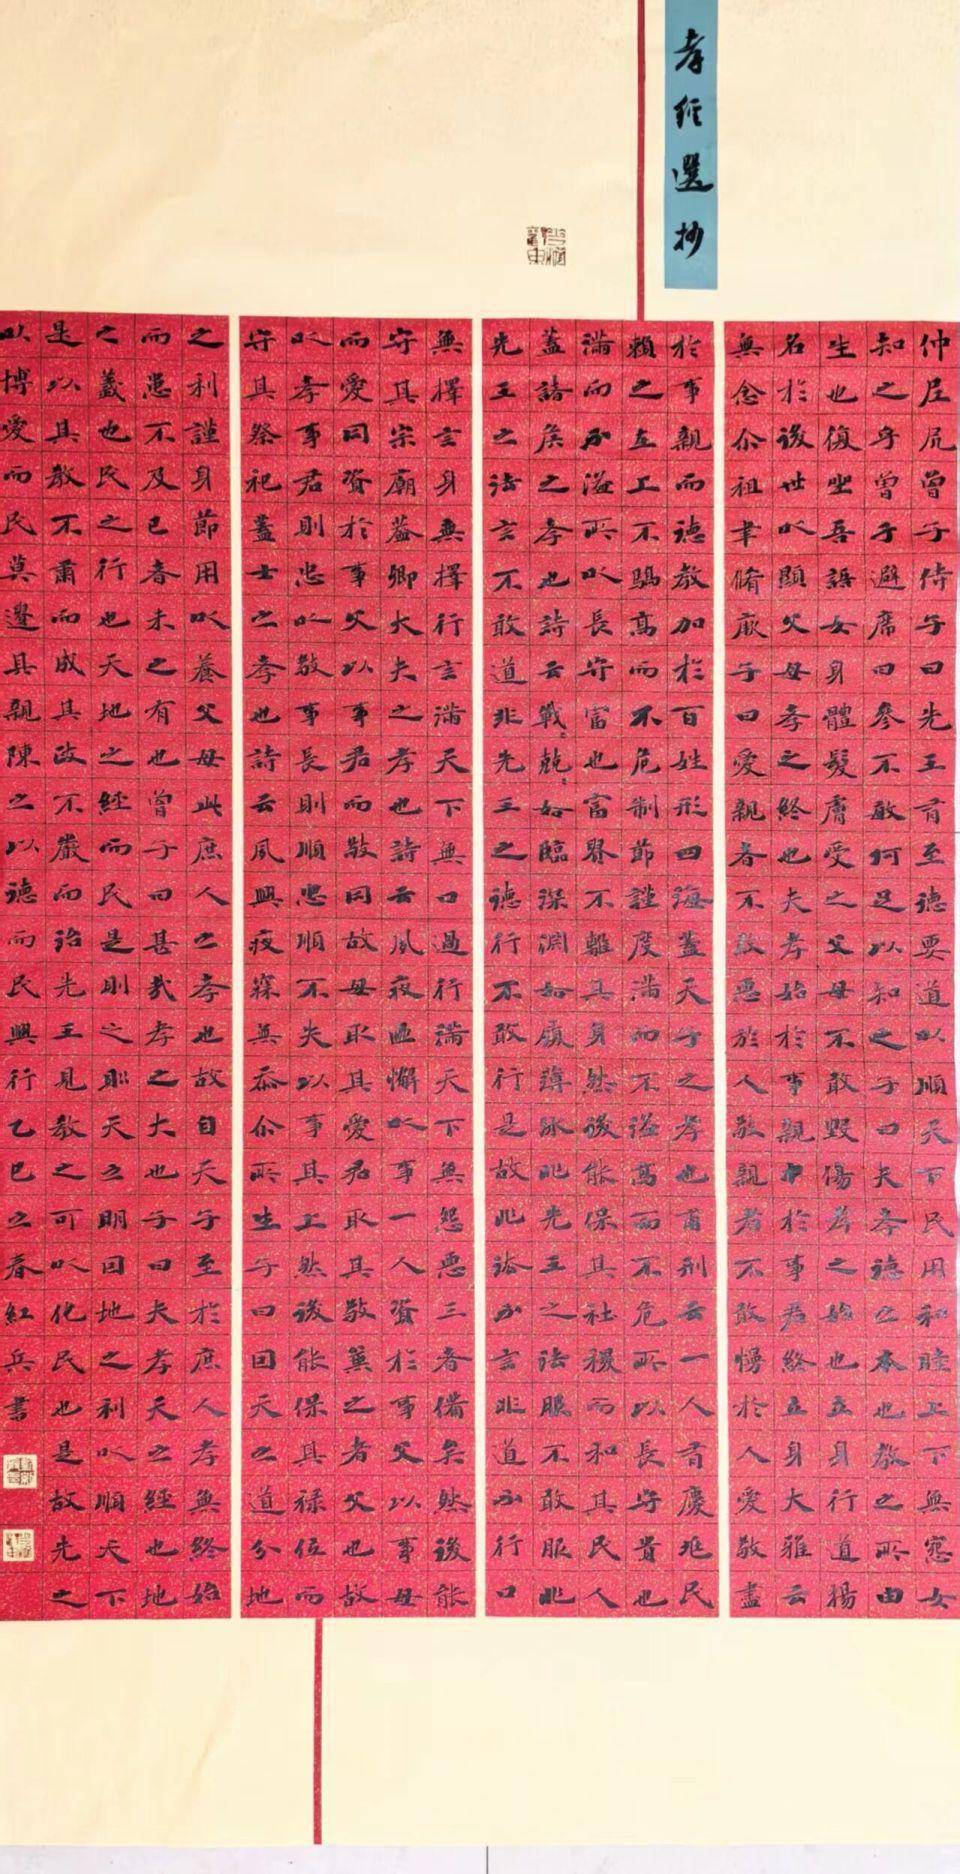 孝经選抄
仲尼凥曾子侍子曰先王有至德要道以順天下民用和睦上下無怨女
知之乎曾子避席曰參不敏何足以知之子曰夫孝德之本也教之所由
生也復坐吾語女身體髮膚受之父母不敢毀傷孝之始也立身行道揚
名於後世以顯父母孝之終也夫孝始於事親中於事君終立身大雅云
無念尒祖聿脩厥子曰愛親者不敢惡於人敬親者不敢慢於人愛敬盡
於事親而德教加於百姓形四海蓋天子之孝也甫刑云一人有慶兆民
賴之在上不驕高而不危制節謹度滿而不溢高而不危所以長守貴也
滿而不溢所以長守富也富貴不離其身然後能保其社稷而和其民人
蓋諸侯之孝也詩云戰〻兢〻如臨深淵如履薄冰非先王之法服不敢服非
先王之法言不敢道非先王之德行不敢行是故非法不言非道不行口
無擇言身無擇行言滿天下無口過行滿天下無怨惡三者備矣然後能
守其宗廟蓋卿大夫之孝也詩云夙夜匪懈以事一人資於事父以事母
而愛同資於事父以事君而敬同故母取其愛君取其敬兼之者父也故
以孝事君則忠以敬事長則順忠順不失以事其上然後能保其祿位而
守其祭祀蓋士之孝也詩云夙興夜寐無忝尒所生子曰因天之道分地
之利謹身節用以養父母此庶人之孝也故自天子至於庶人孝無終始
而患不及已者未之有也曾子曰甚哉孝之大也子曰夫孝天之經也地
之義也民之行也天地之經而民是則之則天之明因地之利以順天下
是以其教不肅而成其政不嚴而治先王見教之可以化民也是故先之
以博愛而民莫遺其親陳之以德而民興行乙巳之春紅兵書